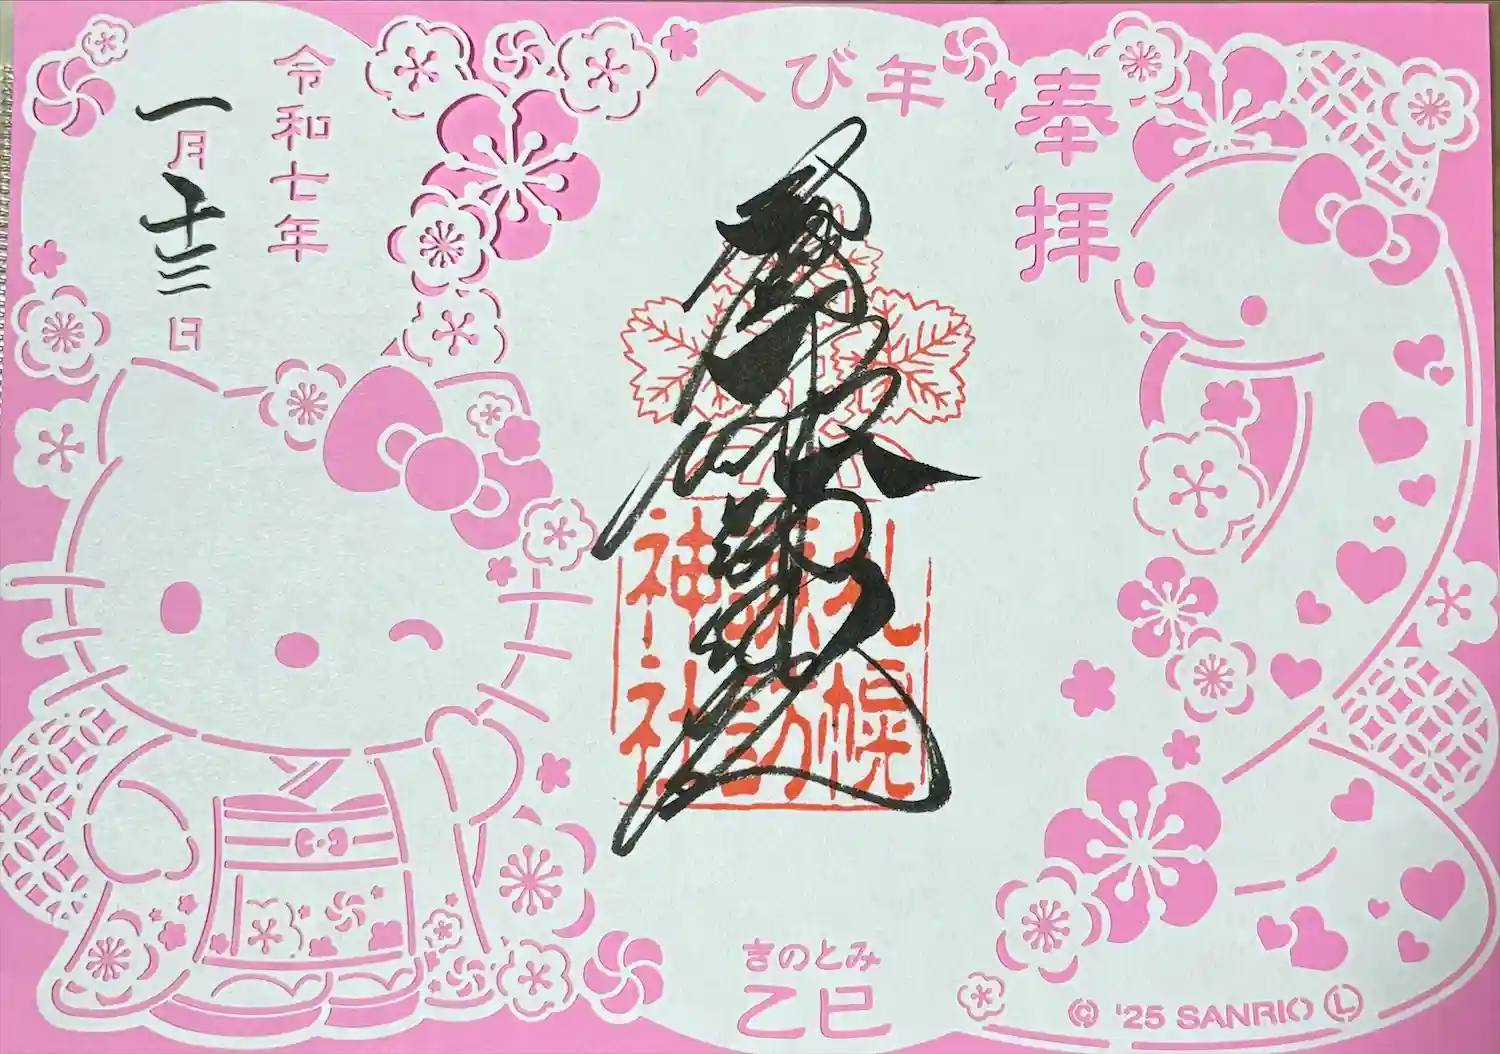 奉拝
へび年
札幌
諏訪
神社
きのとみ
乙巳
令和七年
一月十三日
© '25 SANRIO Ⓛ